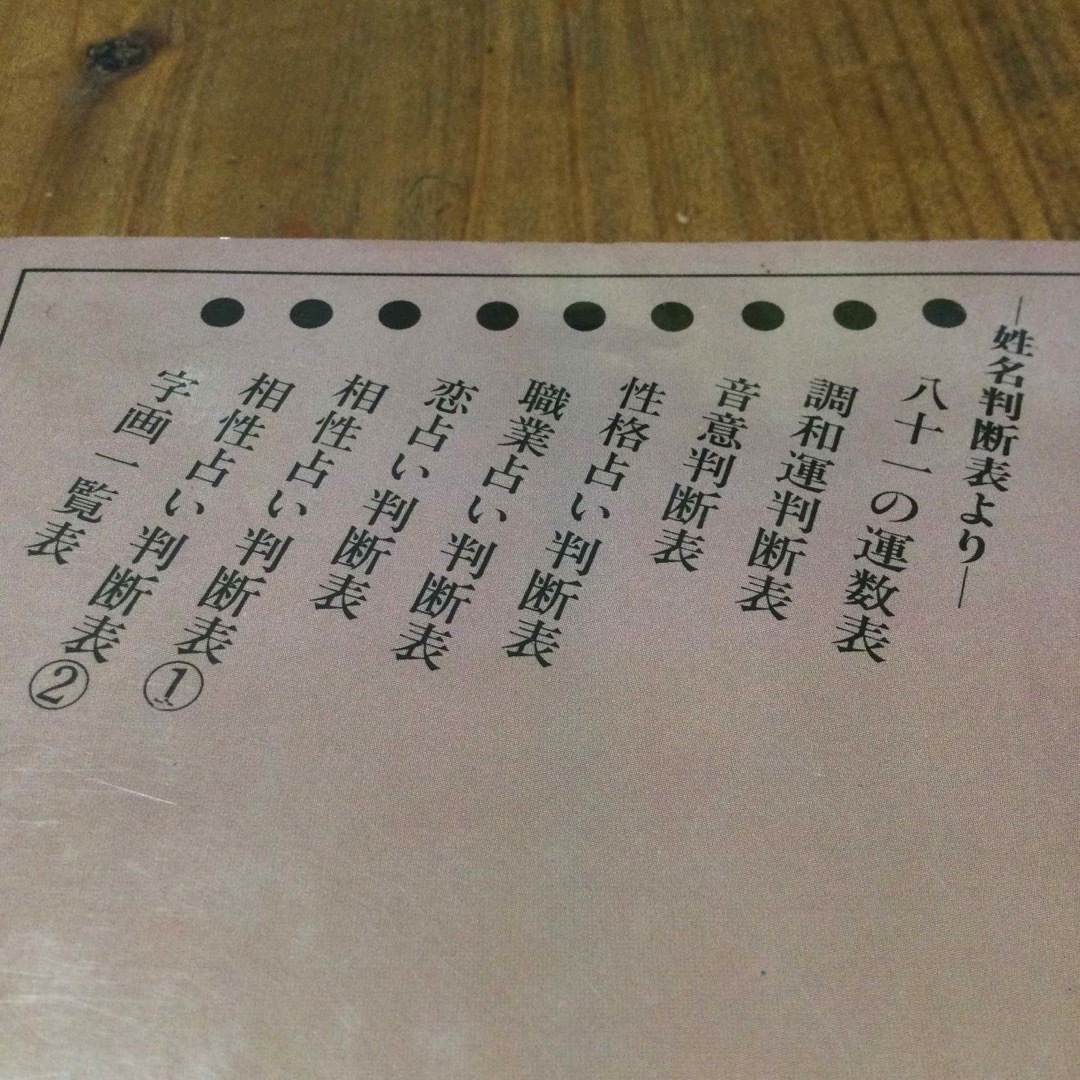 ―姓名判断表より―
●八十一の運数表
●調和運判断表
●音意判断表
●性格占い判断表
●職業占い判断表
●恋占い判断表
●相性占い判断表①
●相性占い判断表②
●字画一覧表